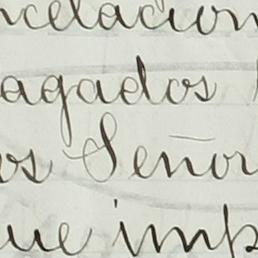 ncelacion
agados
os Señor
ue imp